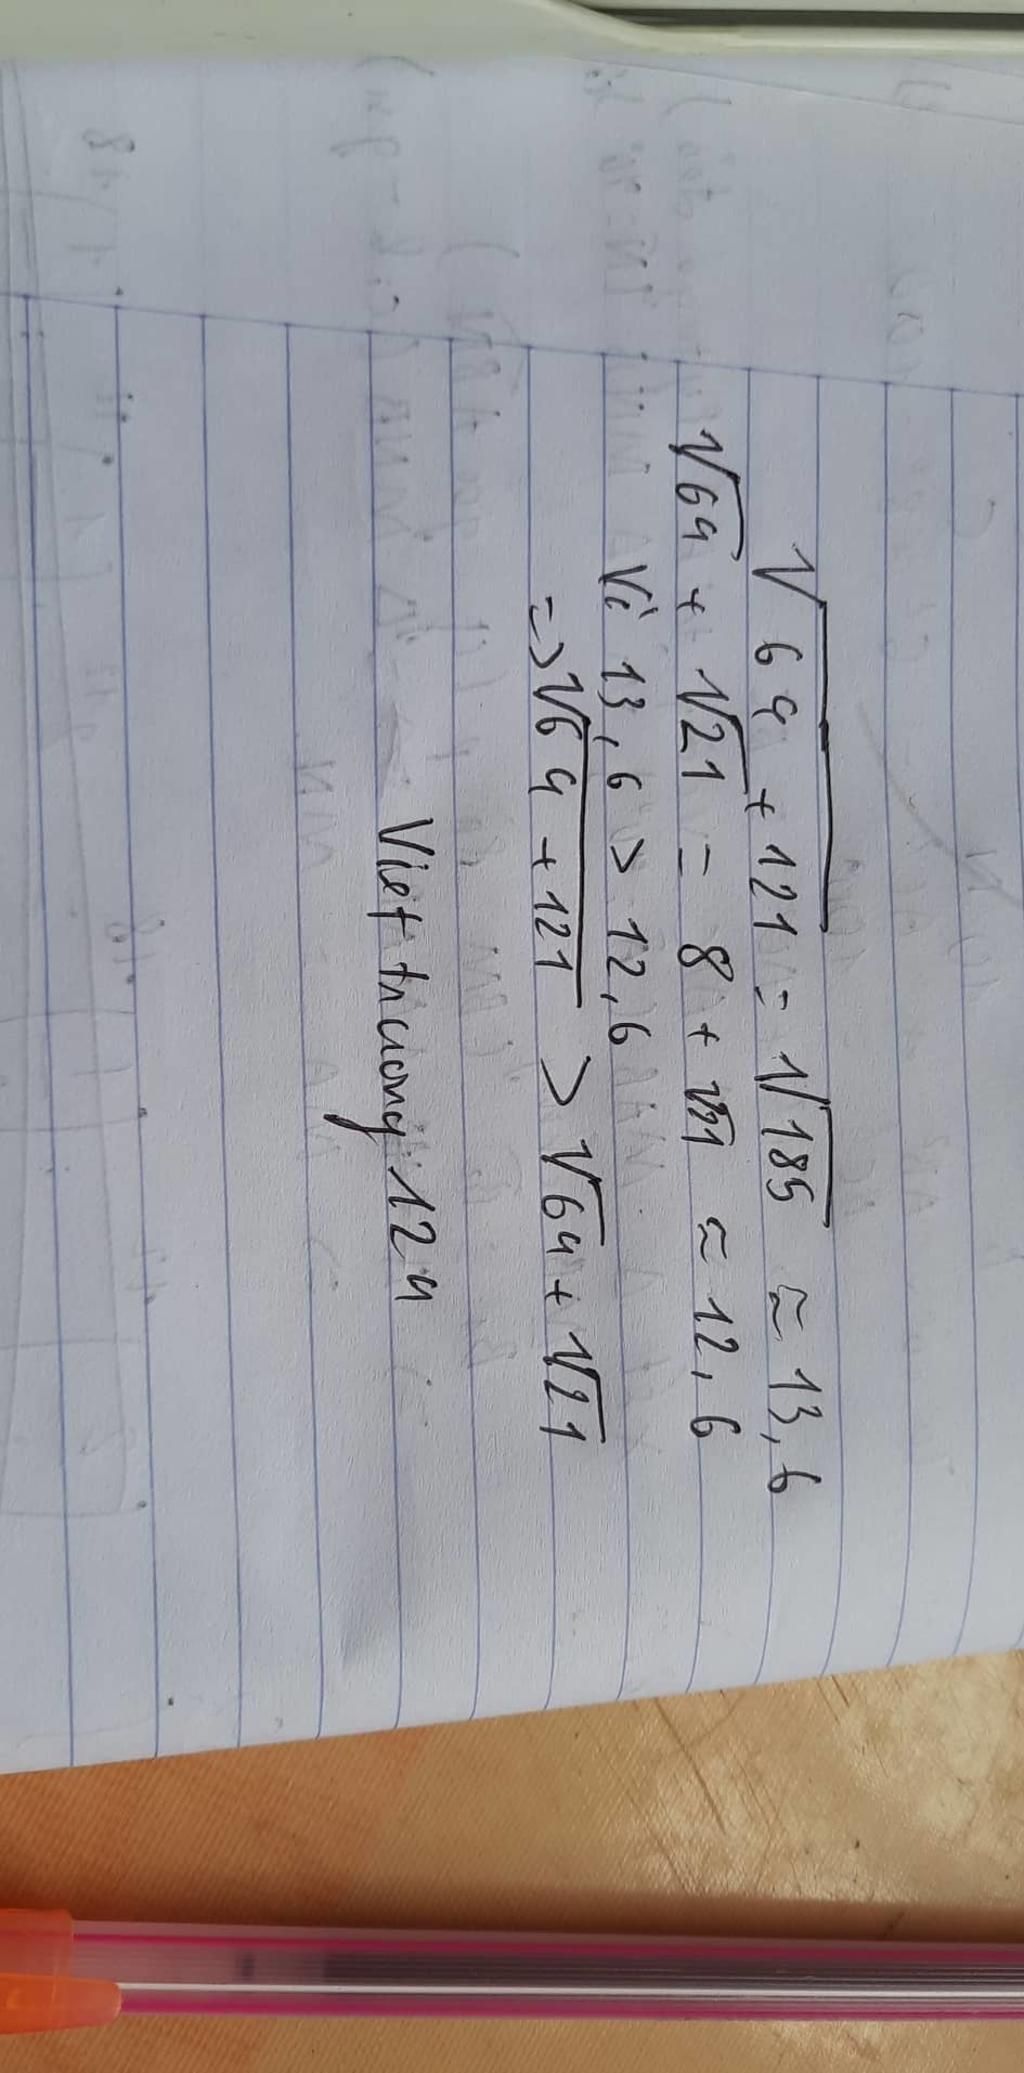 √64 + 121 = √185 ≈ 13,6
√64 + √21 = 8 + √21 ≈ 12,6
Vì 13,6 > 12,6
=> √64 + 121 > √64 + √21
Viettruong124